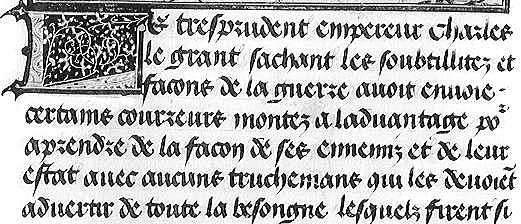 Le tresprudent empereur Charles
le grant sachant les soubtillitez et
facons de la guerre auoit enuoie
certains courreurs montez a laduantage po͛
aprendre de la facon de ses ennemiz et de leur
estat auec aucuns truchemans qui les deuoiēt
aduertir de toute la besongne lesquelz firent si